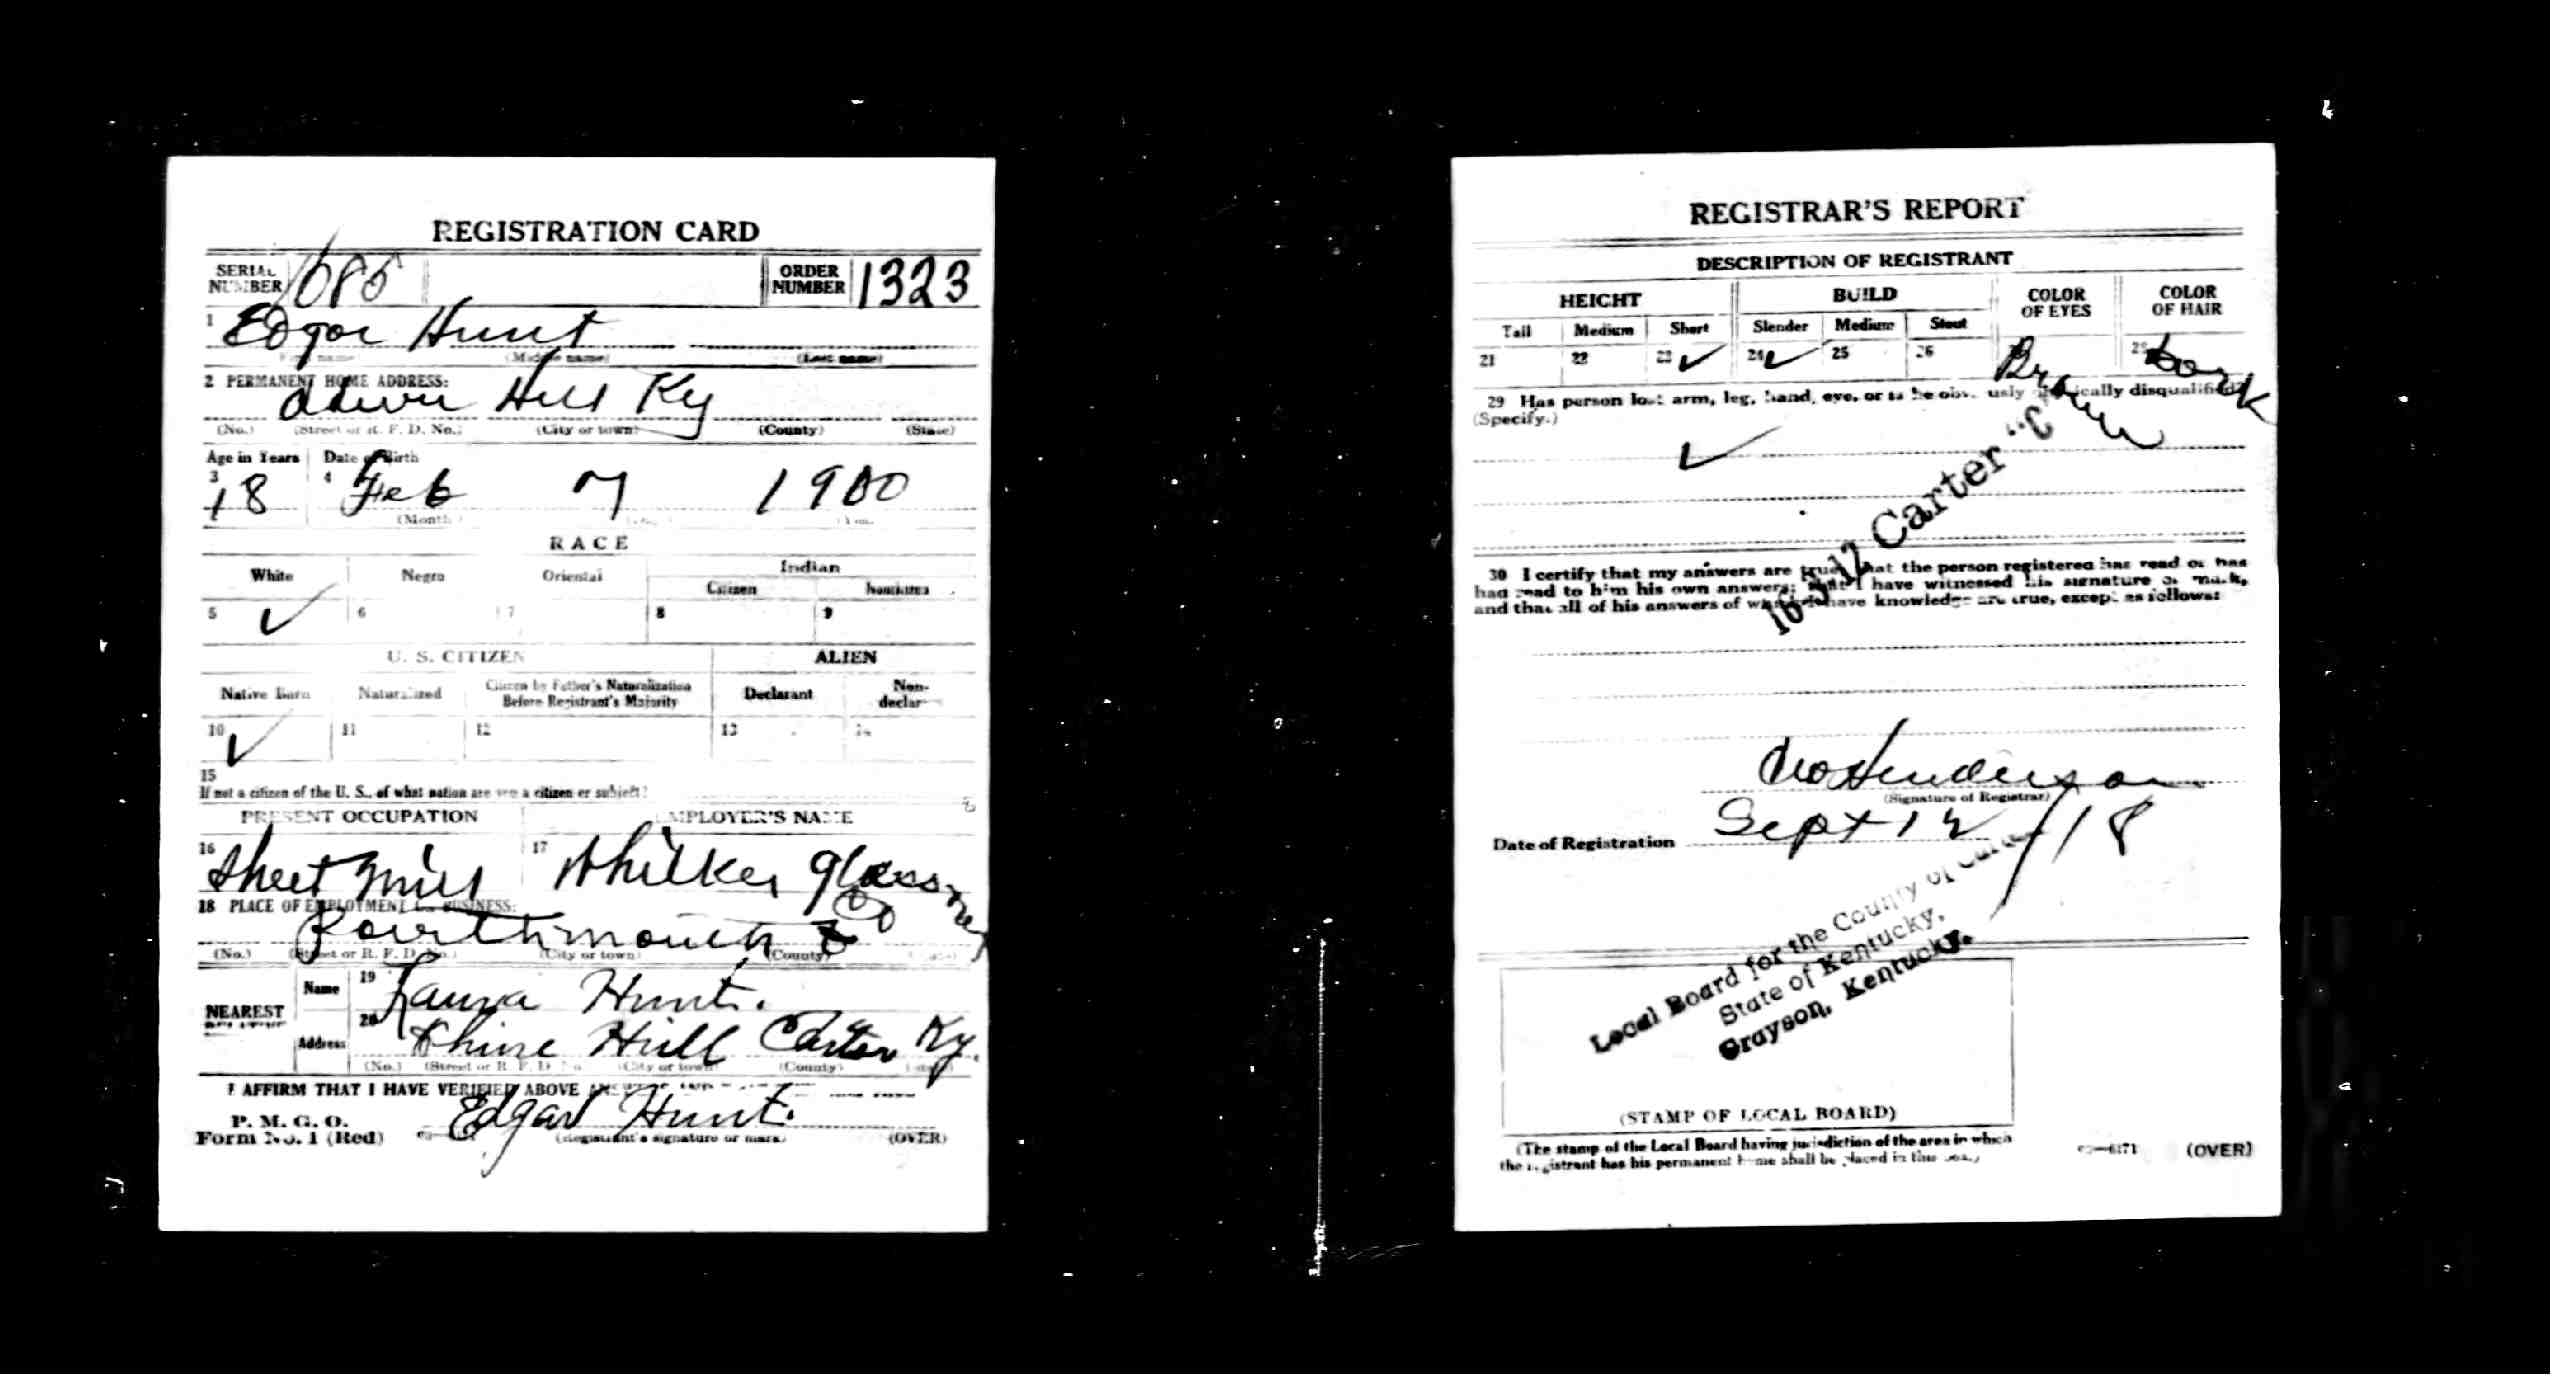 REGISTRATION CARD
SERIAL NUMBER 1686 ORDER NUMBER 1323
1 Edgar Hunt
(First name) (Middle name) (Last name)
2 PERMANENT HOME ADDRESS:
Hill Ky
(No.) (Street or R. F. D. No.) (City or town) (County) (State)
Age in Years Date of Birth
3 18 4 Feb 7 1900
(Month)
RACE
White Negro Oriental Indian
Citizen Noncitizen
5 ✓ 6 7 8 9
U. S. CITIZEN ALIEN
Native Born Naturalized Citizen by Father's Naturalization Before Registrant's Majority Declarant Non-declar
10 ✓ 11 12 13 14
15
If not a citizen of the U. S., of what nation are you a citizen or subject?
PRESENT OCCUPATION EMPLOYER'S NAME
16 Sheet Mill 17 Whitker Glassner Co
18 PLACE OF EMPLOYMENT OR BUSINESS:
Portsmouth O
(No.) (Street or R. F. D. No.) (City or town) (County) (State)
NEAREST RELATIVE
Name 19 Laura Hunt.
Address 20 Hill Carter Ky.
(No.) (Street or R. F. D. No.) (City or town) (County) (State)
I AFFIRM THAT I HAVE VERIFIED ABOVE
P. M. G. O.
Form No. 1 (Red) Edgar Hunt.
(Registrant's signature or mark) (OVER)
REGISTRAR'S REPORT
DESCRIPTION OF REGISTRANT
HEIGHT BUILD COLOR OF EYES COLOR OF HAIR
Tall Medium Short Slender Medium Stout
21 22 23 ✓ 24 ✓ 25 26 Brown Dark
29 Has person lost arm, leg, hand, eye, or is he obviously physically disqualified?
(Specify.)
✓
16-3-12 Carter "C"
30 I certify that my answers are true; that the person registered has read or has
had read to him his own answers; that I have witnessed his signature or mark,
and that all of his answers of which I have knowledge are true, except as follows:
Henderson
(Signature of Registrar)
Date of Registration Sept 12 / 18
Local Board for the County of Carter
State of Kentucky,
Grayson, Kentucky.
(STAMP OF LOCAL BOARD)
(The stamp of the Local Board having jurisdiction of the area in which
the registrant has his permanent home shall be placed in this box.)
(OVER)